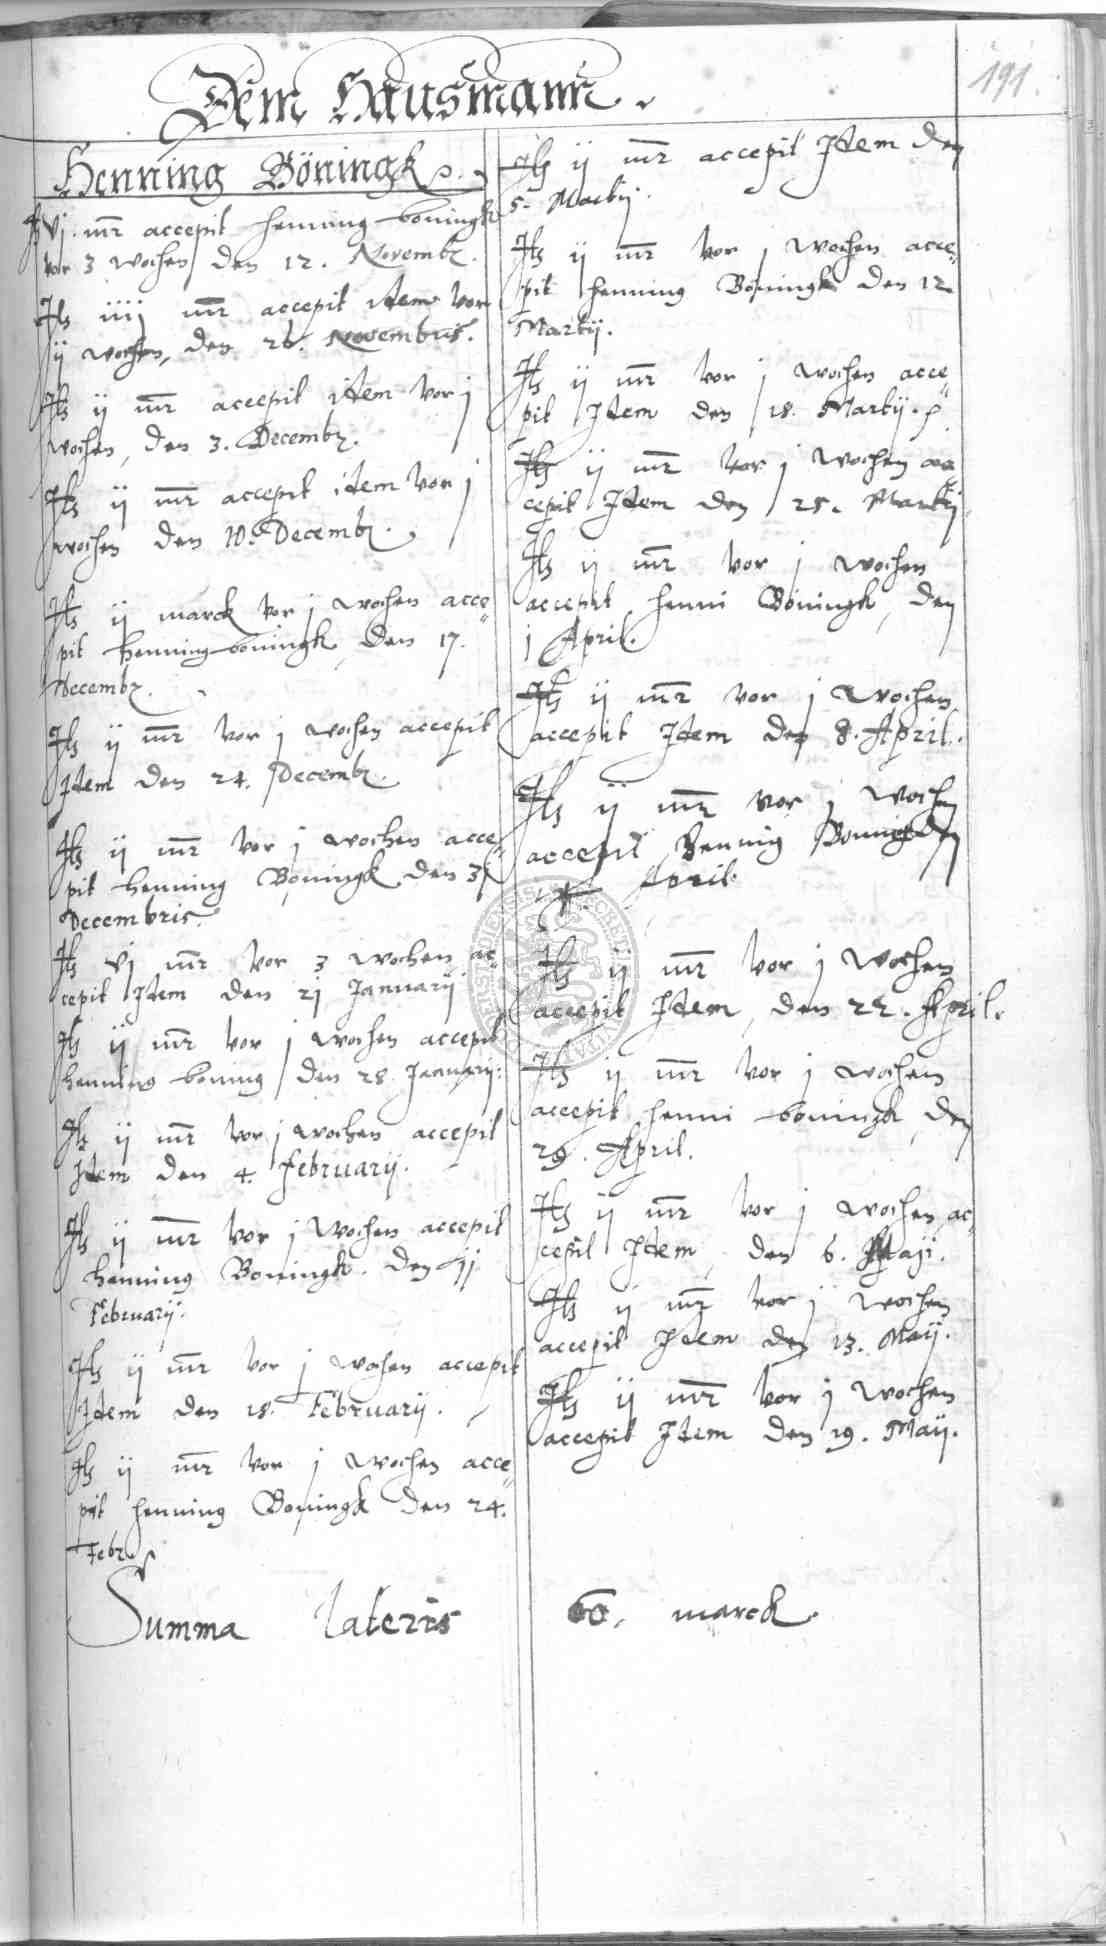 191.
Dem Hausmann.
Henning Böningk
Jts vj. mr accepit henning boningk
vor 3 wochen den 12. Novembr.
Jts iiij mr accepit item vor
ij wochen, den 26. Novembris.
Jts ij mr accepit item vor j
wochen, den 3. Decembr.
Jts ij mr accepit item vor j
wochen den 10. Decembr.
Jts ij marck vor j wochen acce„
pit henning boningk den 17.
Decembr.
Jts ij mr vor j wochen accepit
Jtem den 24. Decembr.
Jts ij mr vor j wochen acce„
pit henning Böningk den 31
Decembris.
Jts vj mr vor 3 wochen ac„
cepit Jtem den 21 Januarij
Jts ij mr vor j wochen accepit
henning boning den 28. Januarij:
Jts ij mr vor j wochen accepit
Jtem den 4. februarij.
Jts ij mr vor j wochen accepit
henning Boningk. den 11
February:
Jts ij mr vor j wochen accepit
Jtem den 18. February.
Jts ij mr vor j wochen acce„
pit henning Boningk den 24.
Febr.
Jts ij mr accepit Jtem den
5. Martij.
Jts ij mr vor j wochen acce„
pit henning Böningk den 12.
Martij.
Jts ij mr vor j wochen acce„
pit Jtem den 18. Martij.
Jts ij mr vor j wochen ac„
cepit Jtem den 25. Martij
Jts ij mr vor j wochen
accepit henni Böningk, den
j April.
Jts ij mr vor j wochen
accepit Jtem den 8. April.
Jts ij mr vor j wochen
accepit Hennig Bonnigk den
April.
Jts ij mr vor j wochen
accepit Jtem, den 22. April.
Jts ij mr vor j wochen
accepit henni boningk, den
29. April.
Jts ij mr vor j wochen ac„
cepit Jtem, den 6. Maji.
Jts ij mr vor j wochen
accepit Jtem den 13. Maij.
Jts ij mr vor j wochen
accepit Jtem den 19. Maij.
Summa lateris 60. marck.